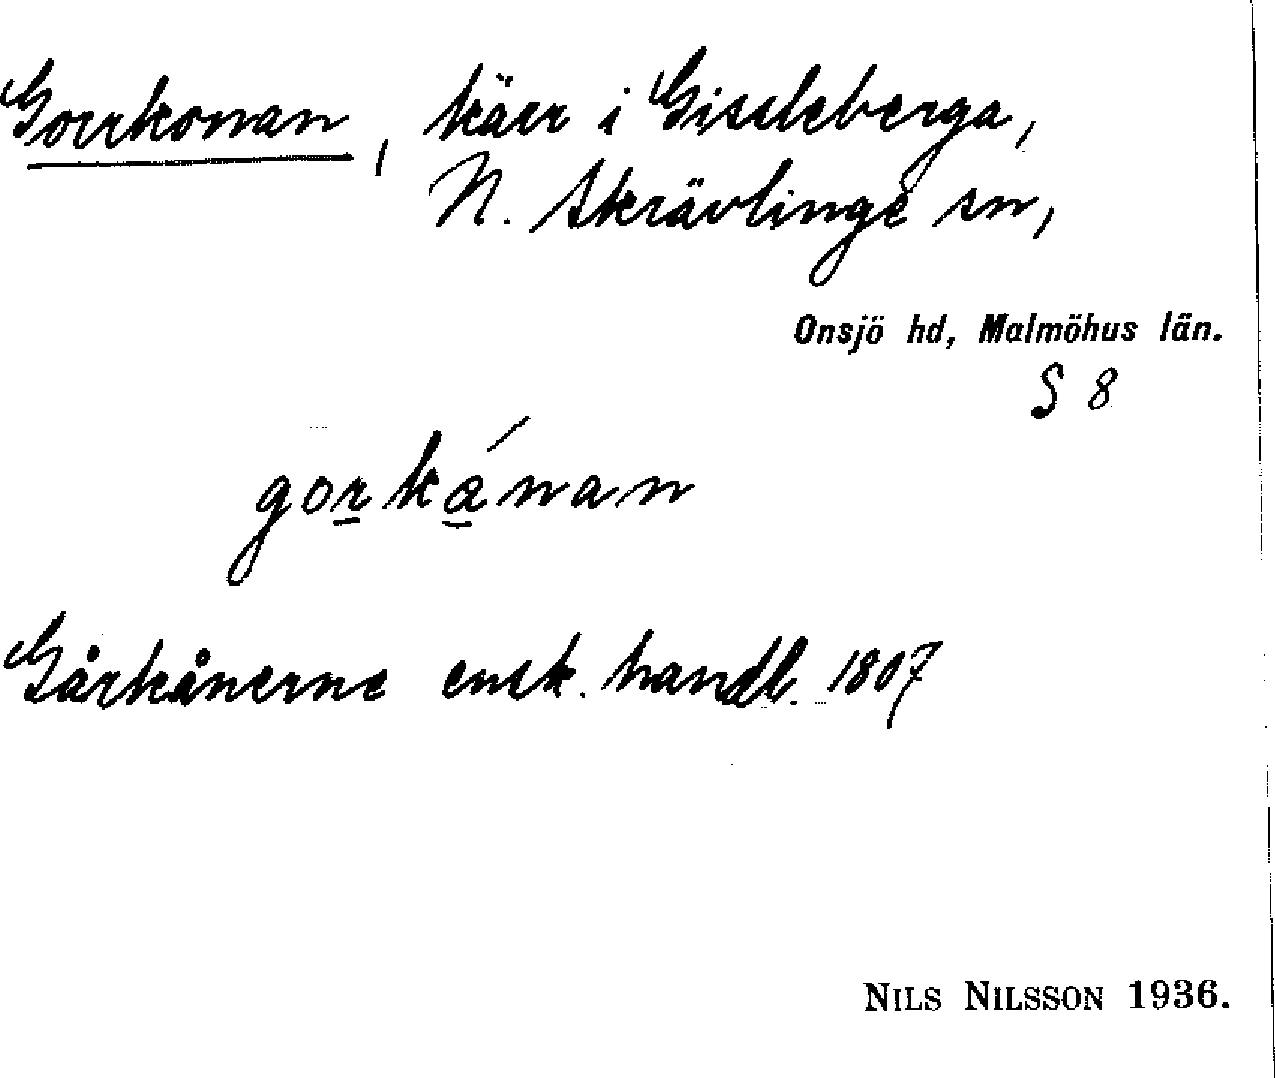 Gorrkonan, kärr i Gissleberga,
N. Skrävlinge sn,
Onsjö hd, Malmöhus län.
S 8
gorkánan
Gårkånerne ensk. handl. 1807
NILS NILSSON 1936.